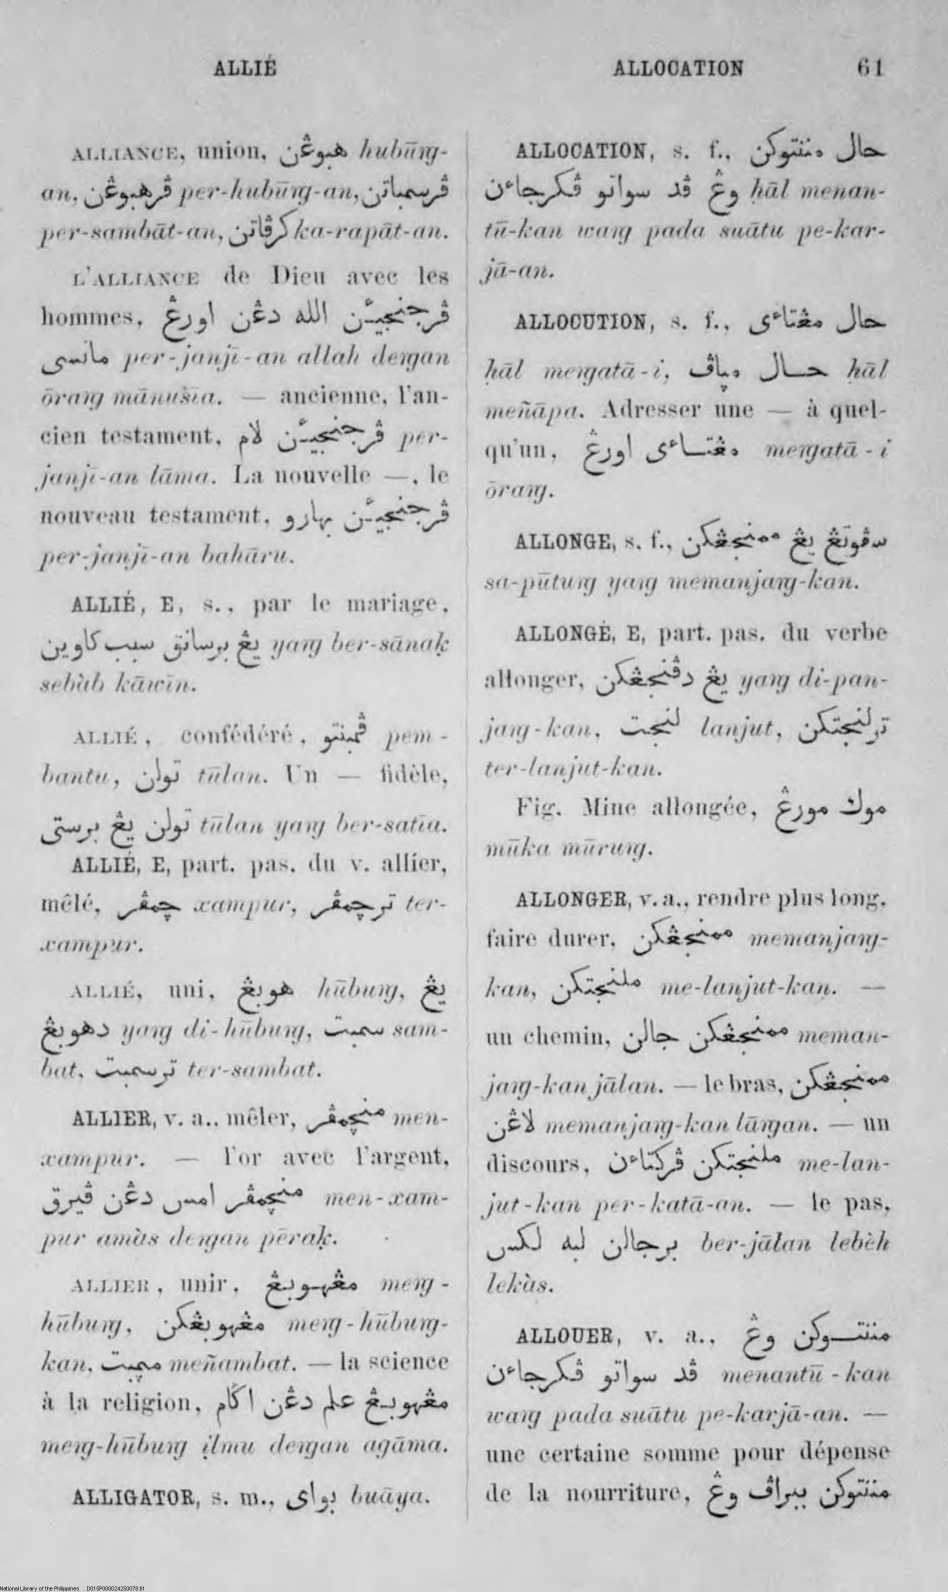 ALLIÉ
ALLOCATION 61
ALLIANCE, union, هبوڠن hubūng-
an, ڤرهبوڠن per-hubūng-an, ڤرسمباتن
per-sambāt-an, کرڤاتن ka-rapāt-an.
L'ALLIANCE de Dieu avec les
hommes, ڤرجنجيئن الله دڠن اورڠ
مانسي per-janjī-an allah dengan
ōrang mānusīa. — ancienne, l'an-
cien testament, ڤرجنجيئن لام per-
janjī-an lāma. La nouvelle —, le
nouveau testament, ڤرجنجيئن بهارو
per-janjī-an bahāru.
ALLIÉ, E, s., par le mariage,
يڠ برسانق سبب کاوين yang ber-sānaḳ
sebàb kāwīn.
ALLIÉ, confédéré, ڤمبنتو pem-
bantu, تولن tūlan. Un — fidèle,
تولن يڠ برستي tūlan yang ber-satīa.
ALLIÉ, E, part. pas. du v. allier,
mêlé, چمڤر xampur, ترچمڤر ter-
xampur.
ALLIÉ, uni, هوبڠ hūbung, يڠ
دهوبڠ yang di-hūbung, سمبت sam-
bat, ترسمبت ter-sambat.
ALLIER, v. a., mêler, منچمڤر men-
xampur. — l'or avec l'argent,
منچمڤر امس دڠن ڤيرق men-xam-
pur amàs dengan pēraḳ.
ALLIER, unir, مڠهوبڠ meng-
hūbung, مڠهوبڠکن meng-hūbung-
kan, مڽمبت meñambat. — la science
à la religion, مڠهوبڠ علم دڠن اڬام
meng-hūbung ịlmu dengan agāma.
ALLIGATOR, s. m., بواي buāya.
ALLOCATION, s. f., حال مننتوکن
وڠ ڤد سواتو ڤکرجاءن ḥāl menan-
tū-kan wang pada suātu pe-kar-
jā-an.
ALLOCUTION, s. f., حال مڠتاءي
ḥāl mengatā-i, حال مڽاڤ ḥāl
meñāpa. Adresser une — à quel-
qu'un, مڠتاءي اورڠ mengatā-i
ōrang.
ALLONGE, s. f., سڤوتڠ يڠ ممنجڠکن
sa-pūtung yang memanjang-kan.
ALLONGÉ, E, part. pas. du verbe
allonger, يڠ دڤنجڠکن yang di-pan-
jang-kan, لنجت lanjut, ترلنجتکن
ter-lanjut-kan.
Fig. Mine allongée, موك مورڠ
mūka mūrung.
ALLONGER, v. a., rendre plus long,
faire durer, ممنجڠکن memanjang-
kan, ملنجتکن me-lanjut-kan. —
un chemin, ممنجڠکن جالن meman-
jang-kan jālan. — le bras, ممنجڠکن
لاڠن memanjang-kan lāngan. — un
discours, ملنجتکن ڤرکتاءن me-lan-
jut-kan per-katā-an. — le pas,
برجالن لبه لکس ber-jālan lebèh
lekàs.
ALLOUER, v. a., مننتوکن وڠ
ڤد سواتو ڤکرجاءن menantū-kan
wang pada suātu pe-karjā-an. —
une certaine somme pour dépense
de la nourriture, مننتوکن ببراڤ وڠ
National Library of the Philippines